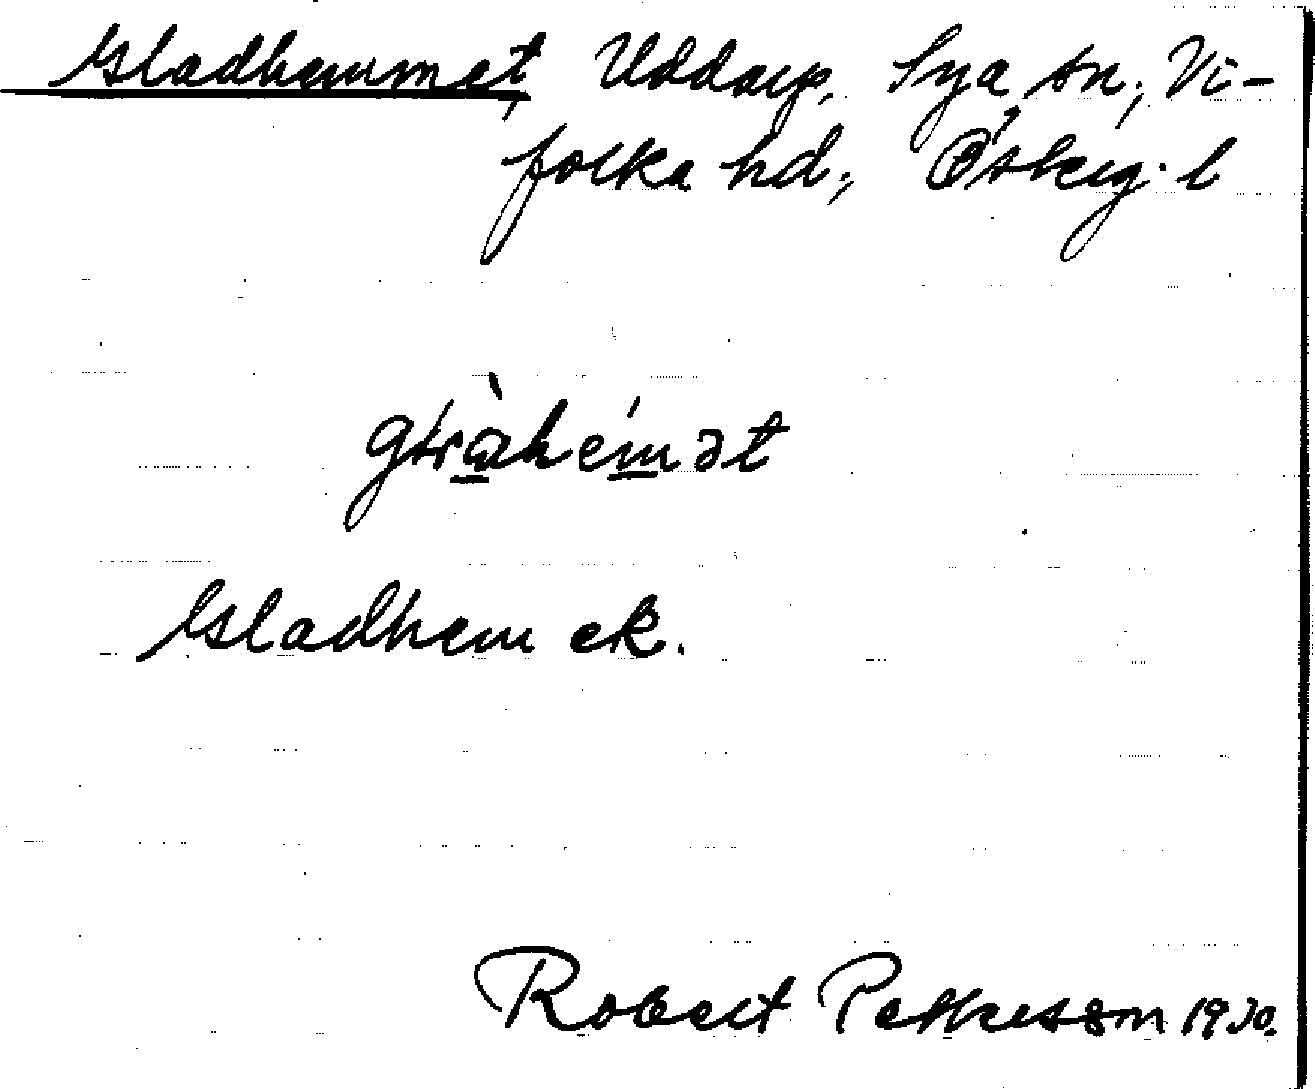 Gladhemmet, Uddarp, Sya sn, Vi-
folka hd, Österg. l
Gladhem ek.
Robert Petterson 1930.